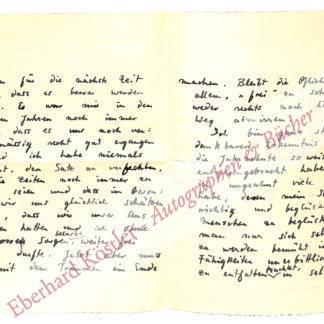 en für die nächste Zeit
dass es besser werden
Es war mir in den
en Jahren noch immer
dass es uns noch ver-
mässig recht gut ergangen
nd ich habe niemals
den Satz zu verfechten.
ie Zeiten noch immer zu
seien und dass im Beson
wir uns glücklich schätzen
dass wir unser Aus
en hatten und ich ohne
grossen Sorgen, belastet, weiter
durfte. Jetzt aber muss
mit dem Träumen am Ende
machen. Bleibt die Pflich
allem, „frei" zu sch
weder rechts noch li
Weg
Ich bin
dankbarer Erkenntnis
die Jahrzehnte so weit
gebracht habe
ungeahnt viele
habe, denen mein S
wichtig und beglück
menschen zu beglück
man nur sich selb
zu werden bemüht i
Fähigkeiten unerbittlich
zu entfalten trachtet, in sei
Eberhard Köstler Autographen & Bücher